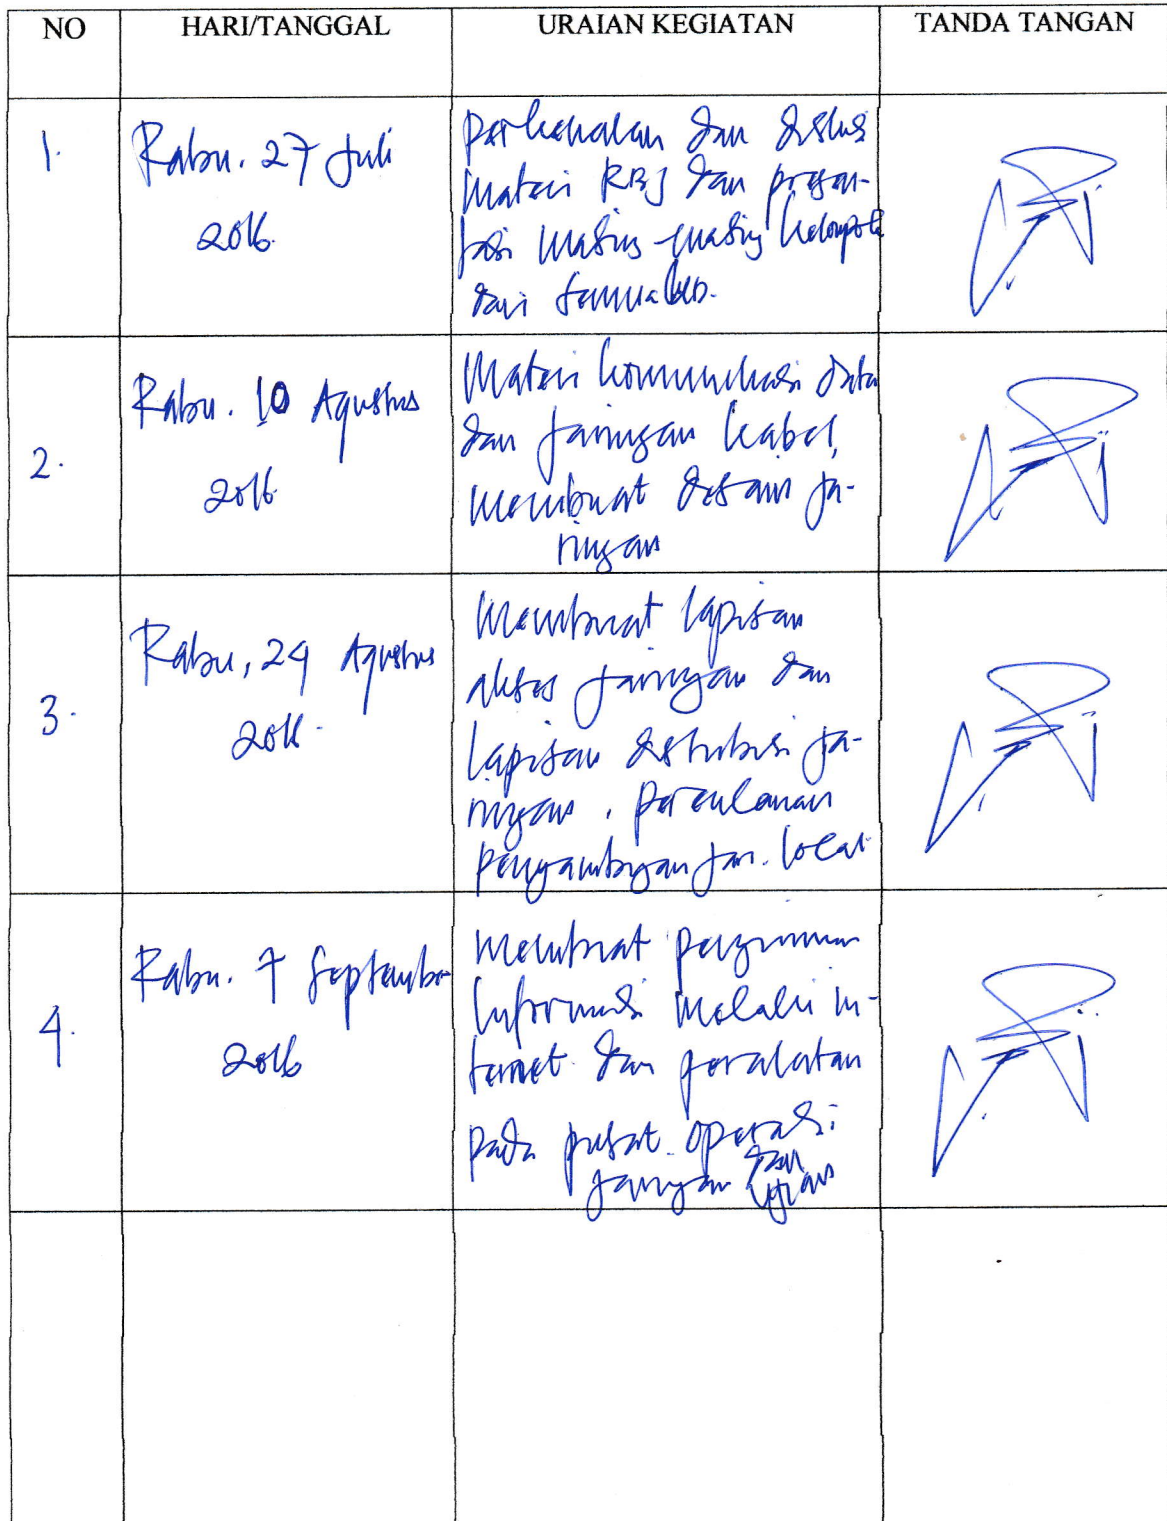 NO HARI/TANGGAL URAIAN KEGIATAN TANDA TANGAN
1. Rabu. 27 Juli
2016.
Perkenalan dan diskusi
Materi RBJ dan presen-
tasi masing-masing kelompok
dari
2. Rabu. 10 Agustus
2016.
Materi komunikasi data
dan jaringan kabel,
Membuat desain ja-
ringan
3. Rabu, 24 Agustus
2016.
Membuat lapisan
akses jaringan dan
lapisan distribusi ja-
ringan, perencanaan
pengambangan jar. local
4. Rabu. 7 September
2016
Membuat
Informasi melalui in-
ternet dan peralatan
pada pusat operasi
jaringan dan
ujian